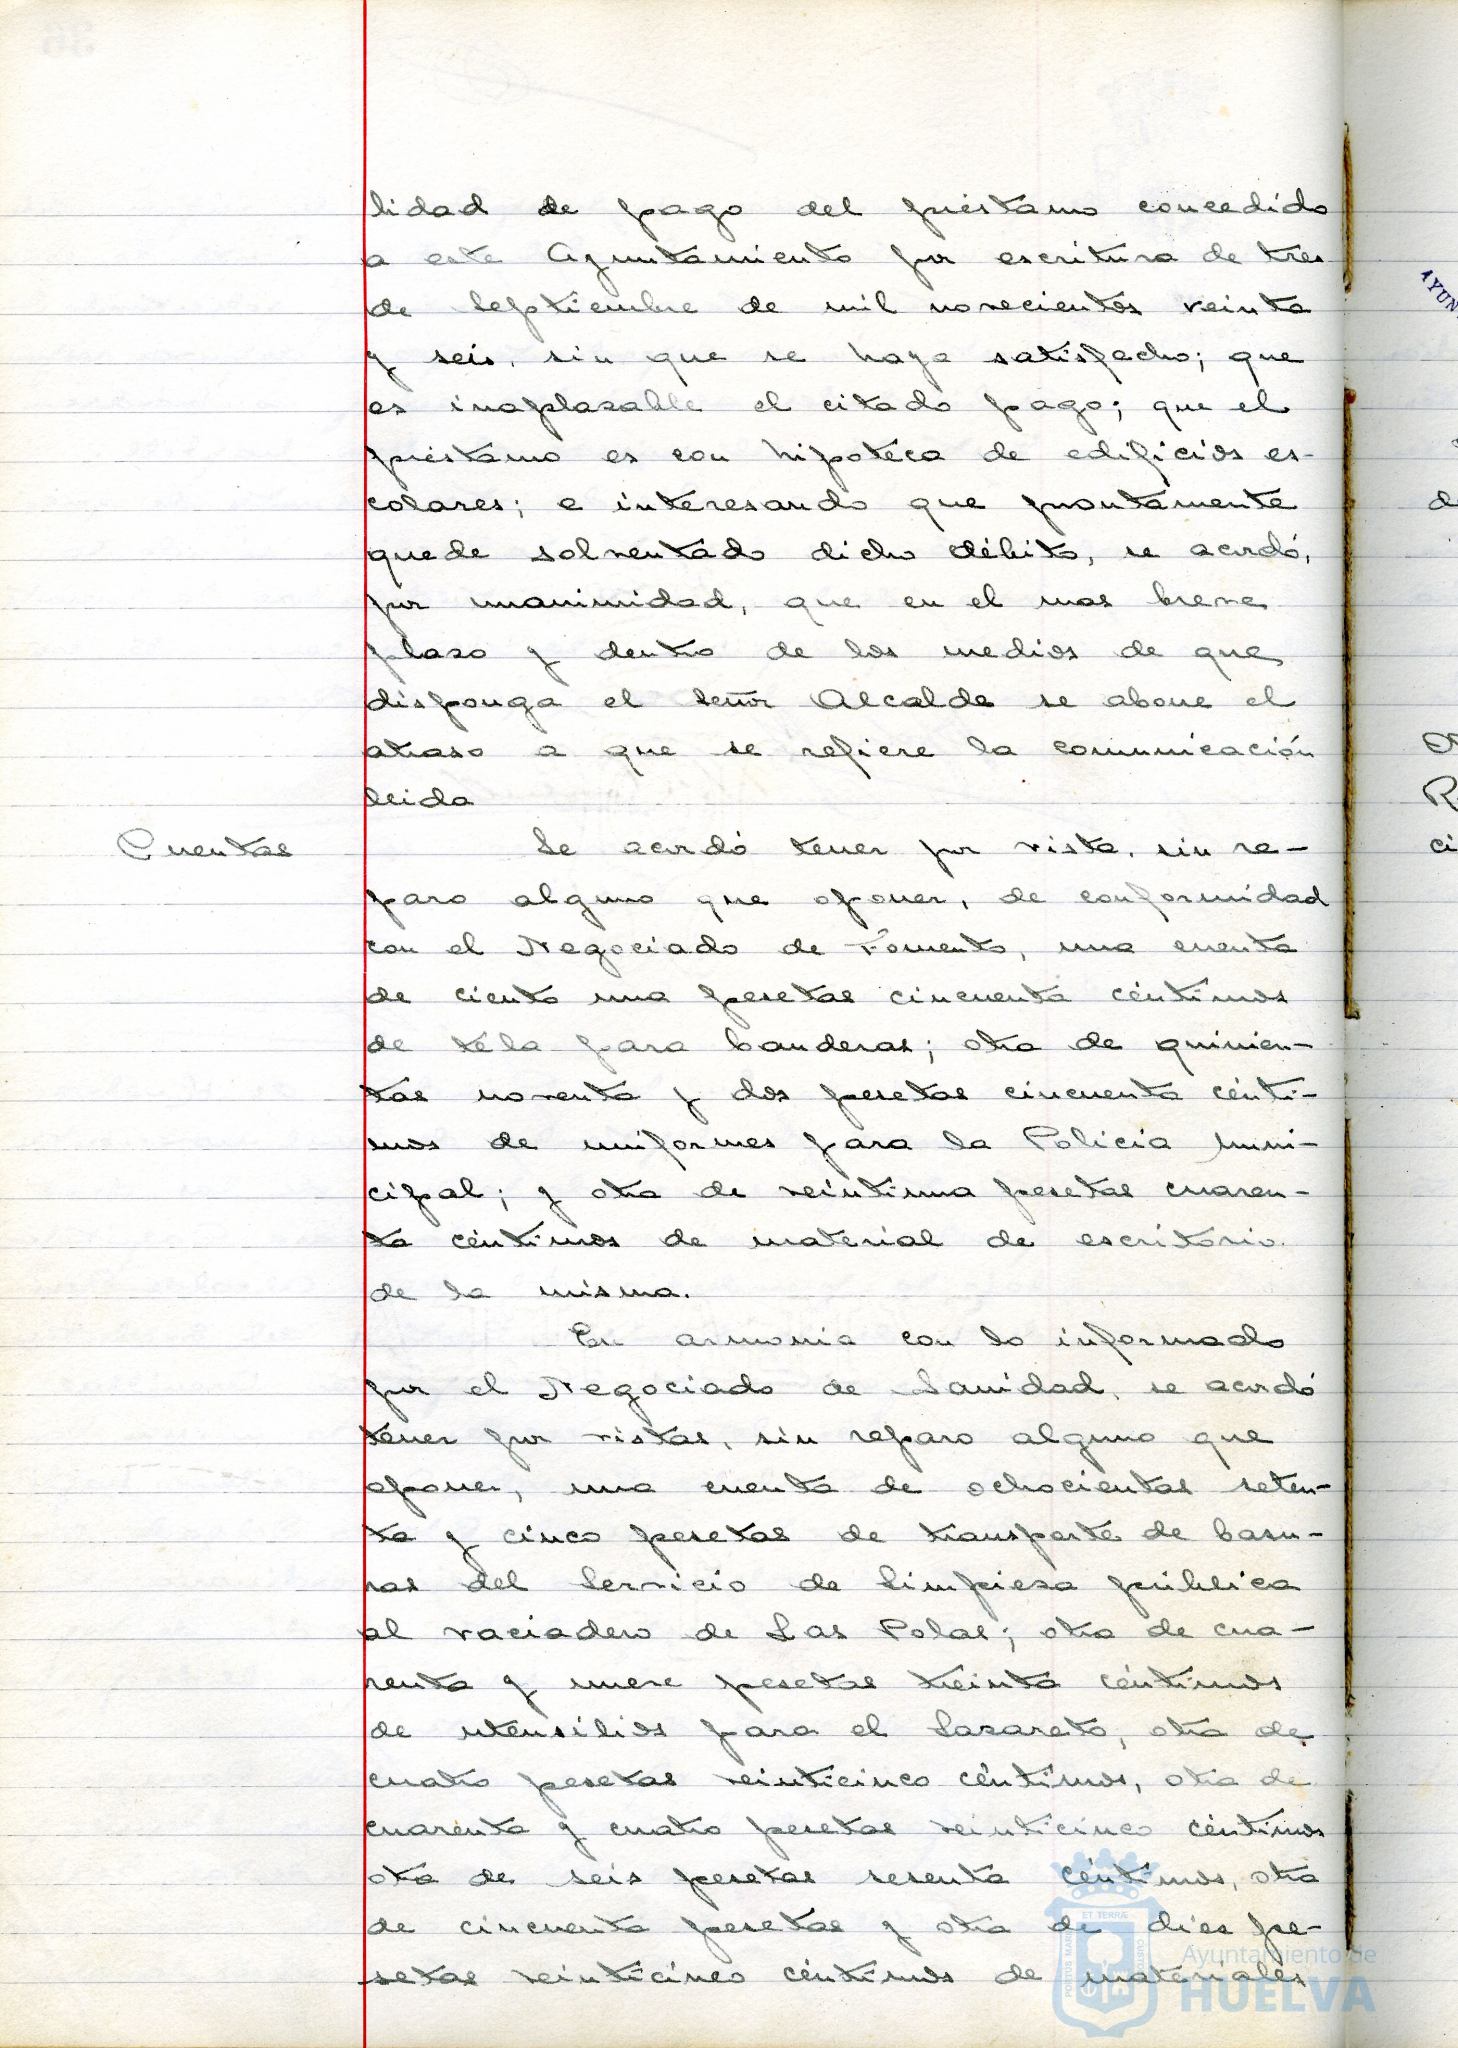 lidad de pago del préstamo concedido
a este Ayuntamiento por escritura de tres
de Septiembre de mil novecientos veinte
y seis, sin que se haya satisfecho; que
es inaplasable el citado pago; que el
préstamo es con hipoteca de edificios es-
colares; e interesando que prontamente
quede solventado dicho débito, se acordó,
por unanimidad, que en el mas breve
plaso y dentro de los medios de que
disponga el señor Alcalde se abone el
atraso a que se refiere la comunicación
leida
Cuentas
Se acordó tener por vista, sin re-
paro alguno que oponer, de conformidad
con el Negociado de Fomento, una cuenta
de ciento una pesetas cincuenta céntimos
de téla para banderas; otra de quinien-
tas noventa y dos pesetas cincuenta cénti-
mos de uniformes para la Policia muni-
cipal; y otra de veintiuna pesetas cuaren-
ta céntimos de material de escritorio
de la misma.
En armonia con lo informado
por el Negociado de Sanidad, se acordó
tener por vistas, sin reparo alguno que
oponer, una cuenta de ochocientas seten-
ta y cinco pesetas de transporte de basu-
ras del Servicio de Limpiesa pública
al vaciadero de Las Polas; otra de cua-
renta y nueve pesetas treinta céntimos
de utensilios para el Lazareto, otra de
cuatro pesetas veinticinco céntimos, otra de
cuarenta y cuatro pesetas veinticinco céntimos
otra de seis pesetas sesenta céntimos, otra
de cincuenta pesetas y otra de dies pe-
setas veinticinco céntimos de materiales
AYUN
de
R
ci
ET TERRÆ
PORTUS MARIS
CUSTODIA
Ayuntamiento de
HUELVA